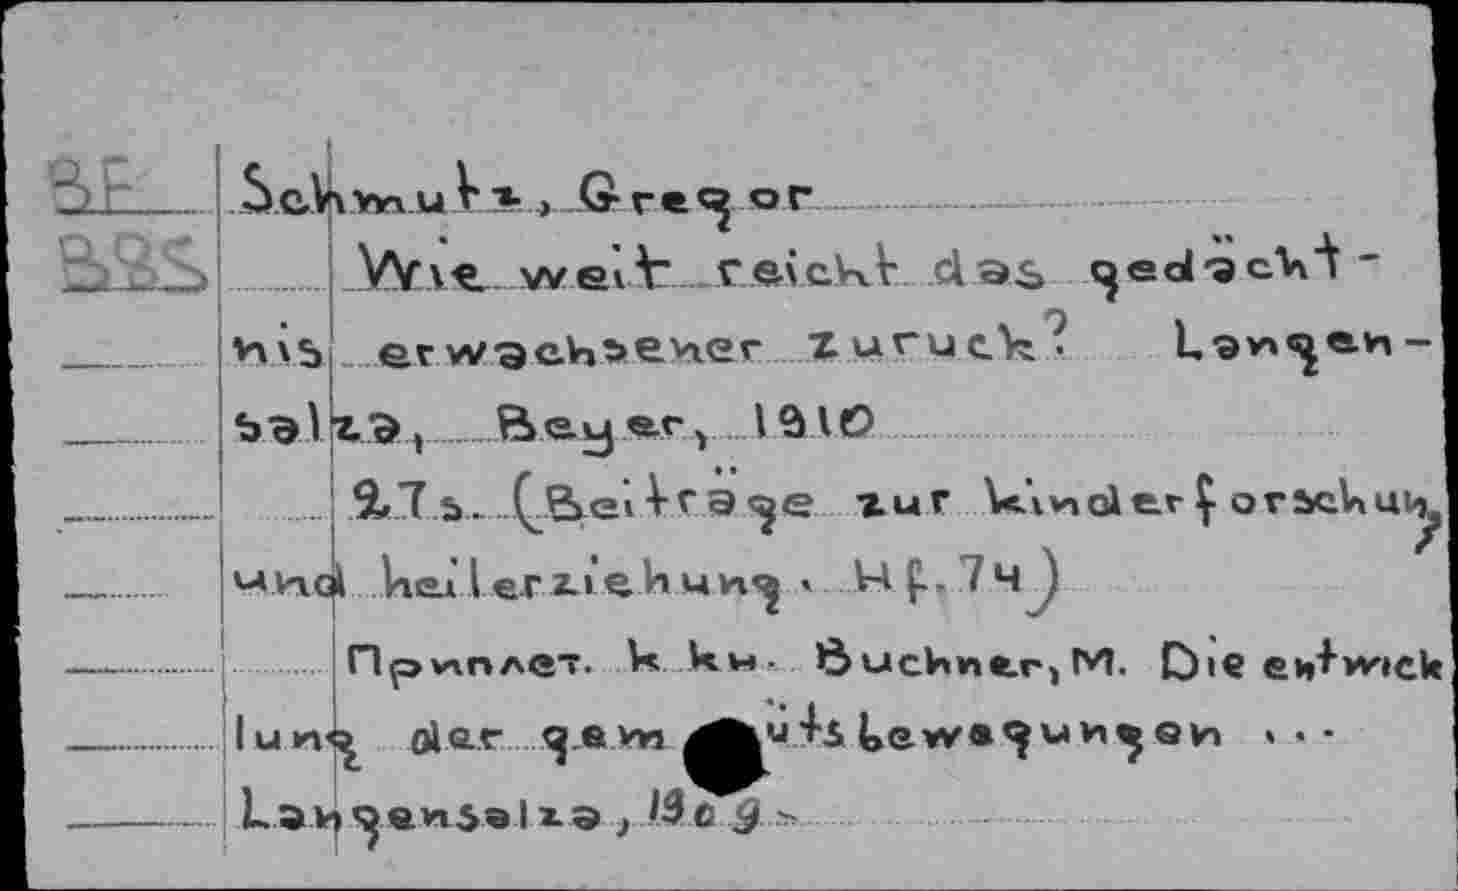 BF Schmutz, Gregor
BBS Wie weit reicht das gedächt-
nis erwachsener zuruck? Langen-
salza, Beyer, 1910
27s. (Beiträge zur kinderforschung
und heilerziehung. Hf. 74)
Приплет. к кн. Buchner, M. Die entwick
lung der gemütsbewegungen ...
Langensalza, 1909